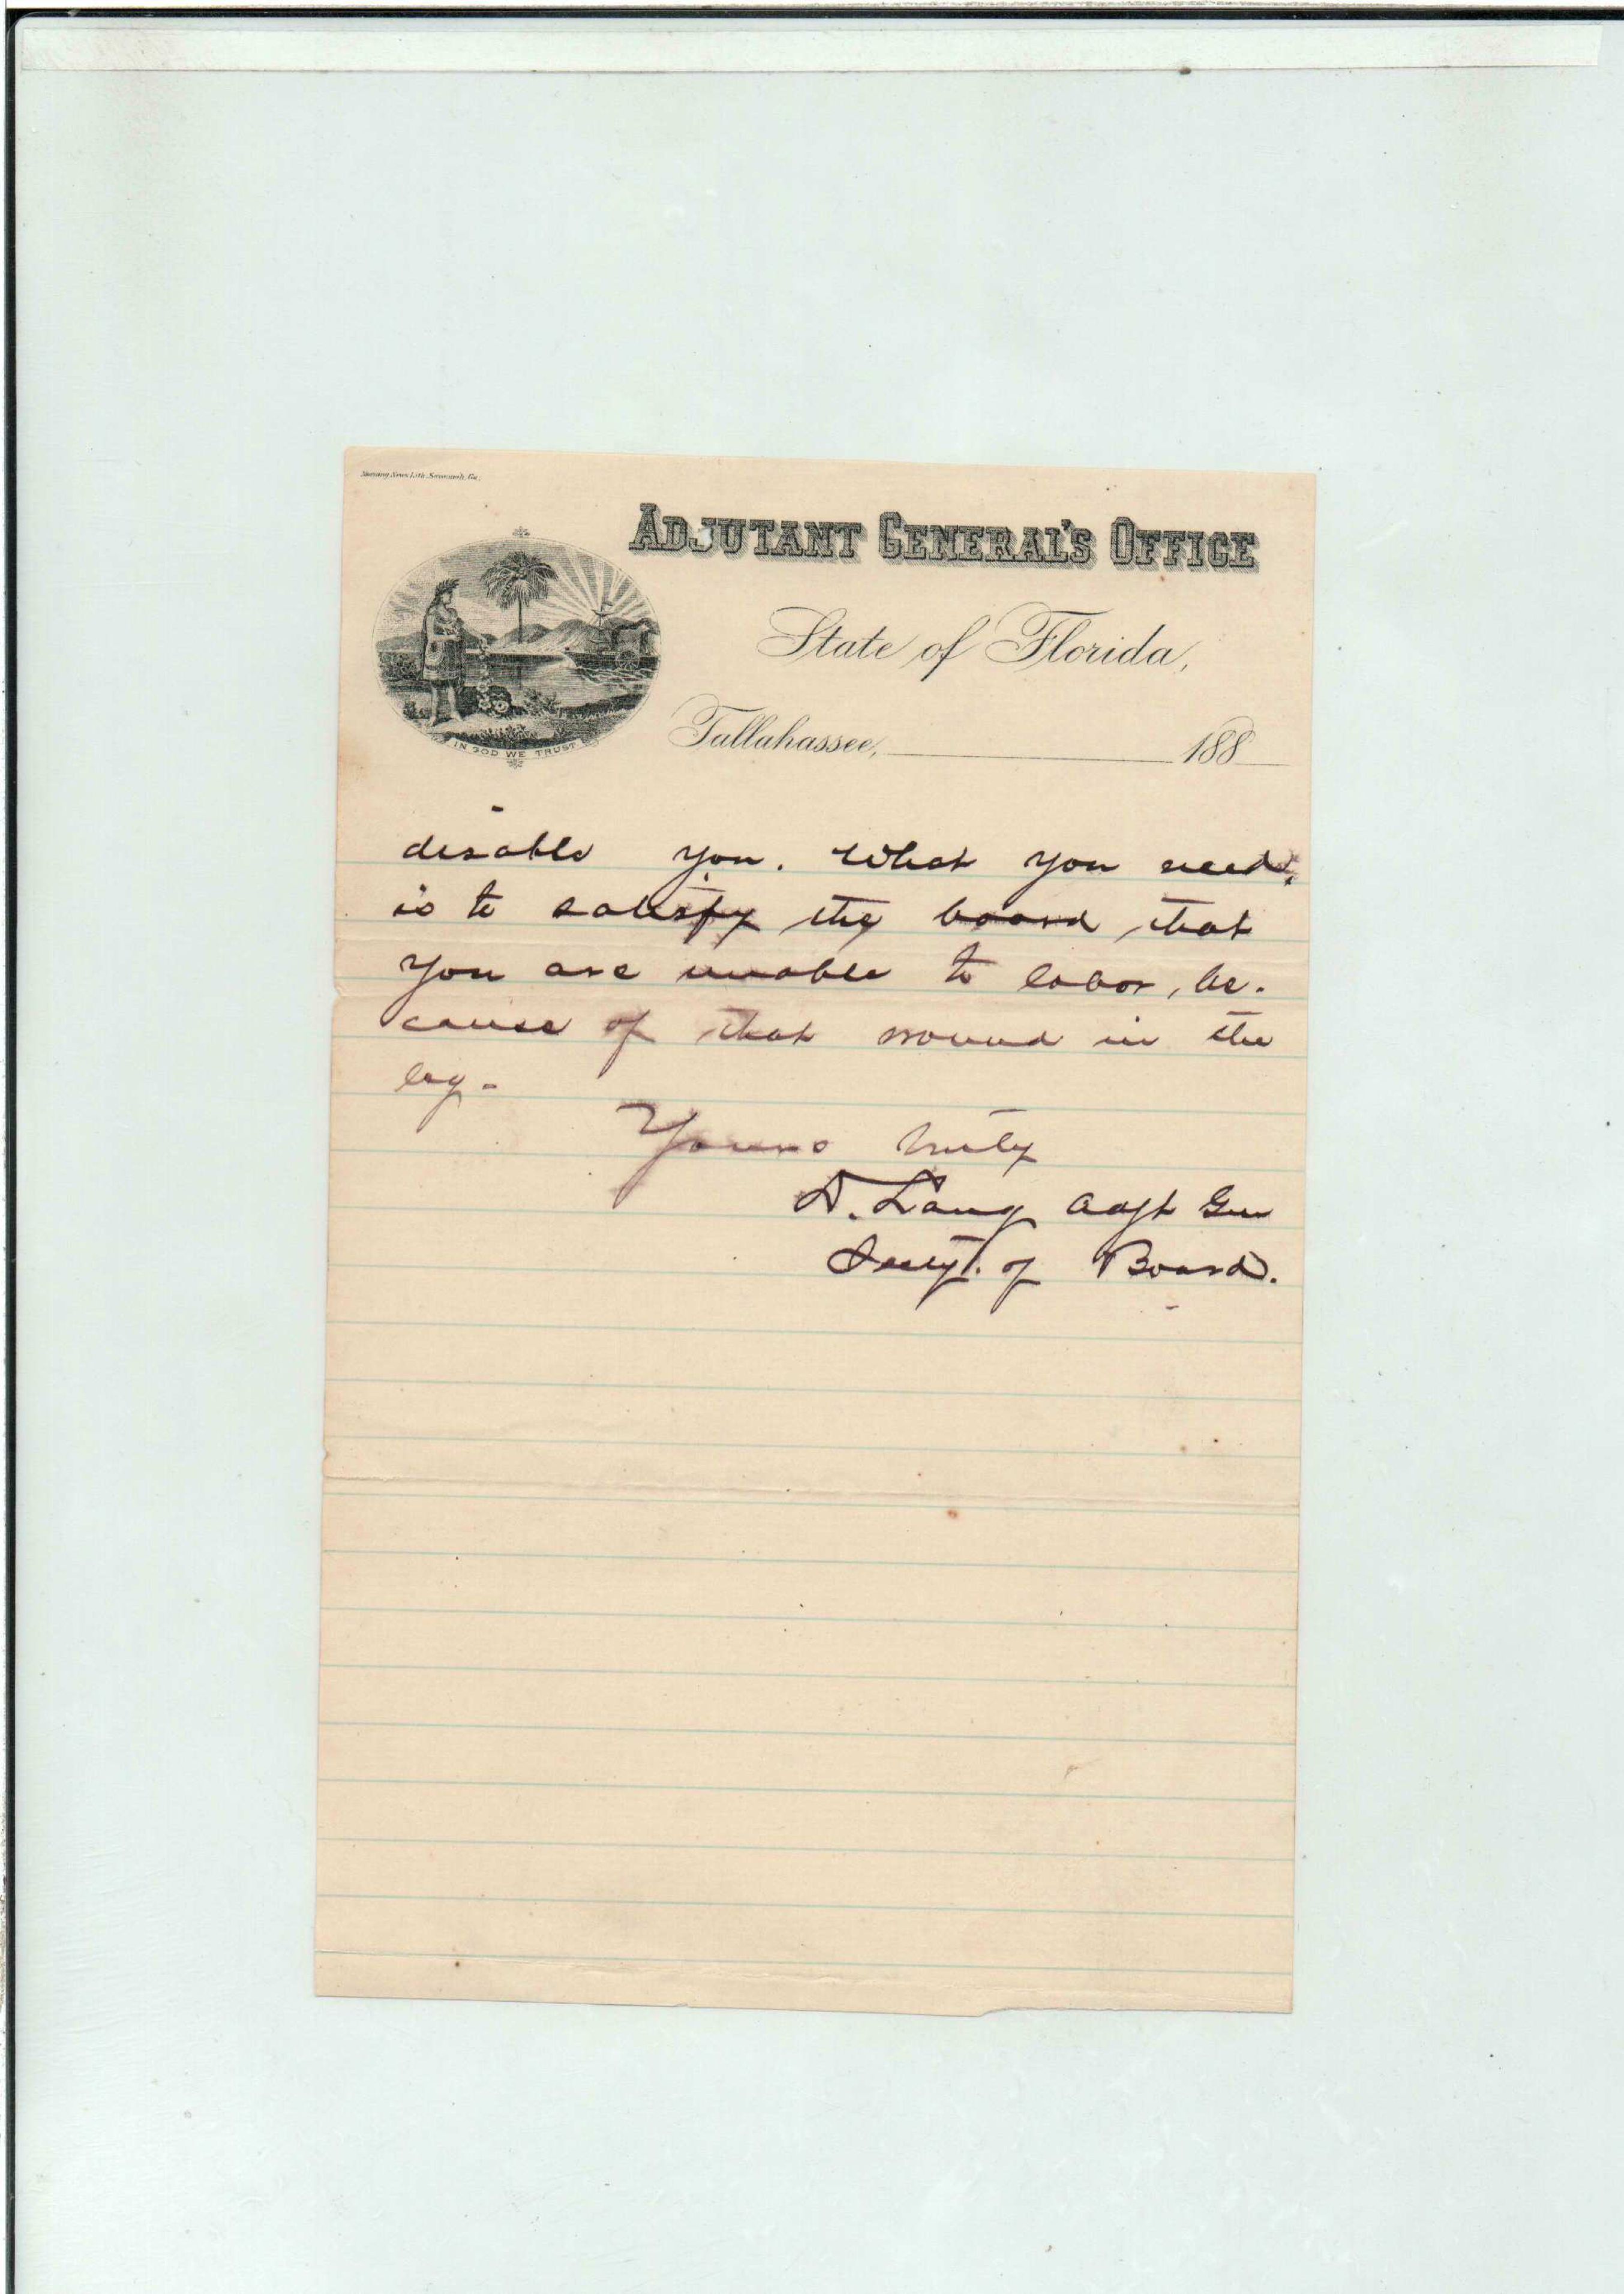 Morning News Lith. Savannah, Ga.
ADJUTANT GENERAL'S OFFICE
State of Florida,
Tallahassee, 188
IN GOD WE TRUST
disable you. What you need,
is to satisfy the board that
you are unable to labor, be-
cause of that wound in the
leg.
Yours truly
D. Lang Adjt Gen
Secty. of Board.